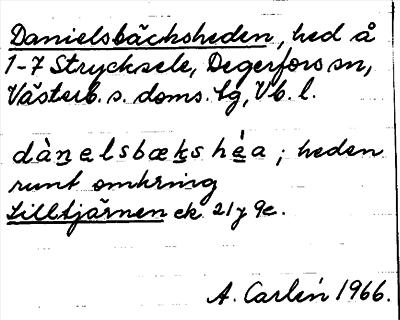 Danielsbäcksheden, hed å
1-7 Strycksele, Degerfors sn,
Västerb. s. doms. tg, Vb. l.
dànelsbæks hèa; heden
runt omkring
Lilltjärnen ek. 21 y 9e.
A. Carlén 1966.